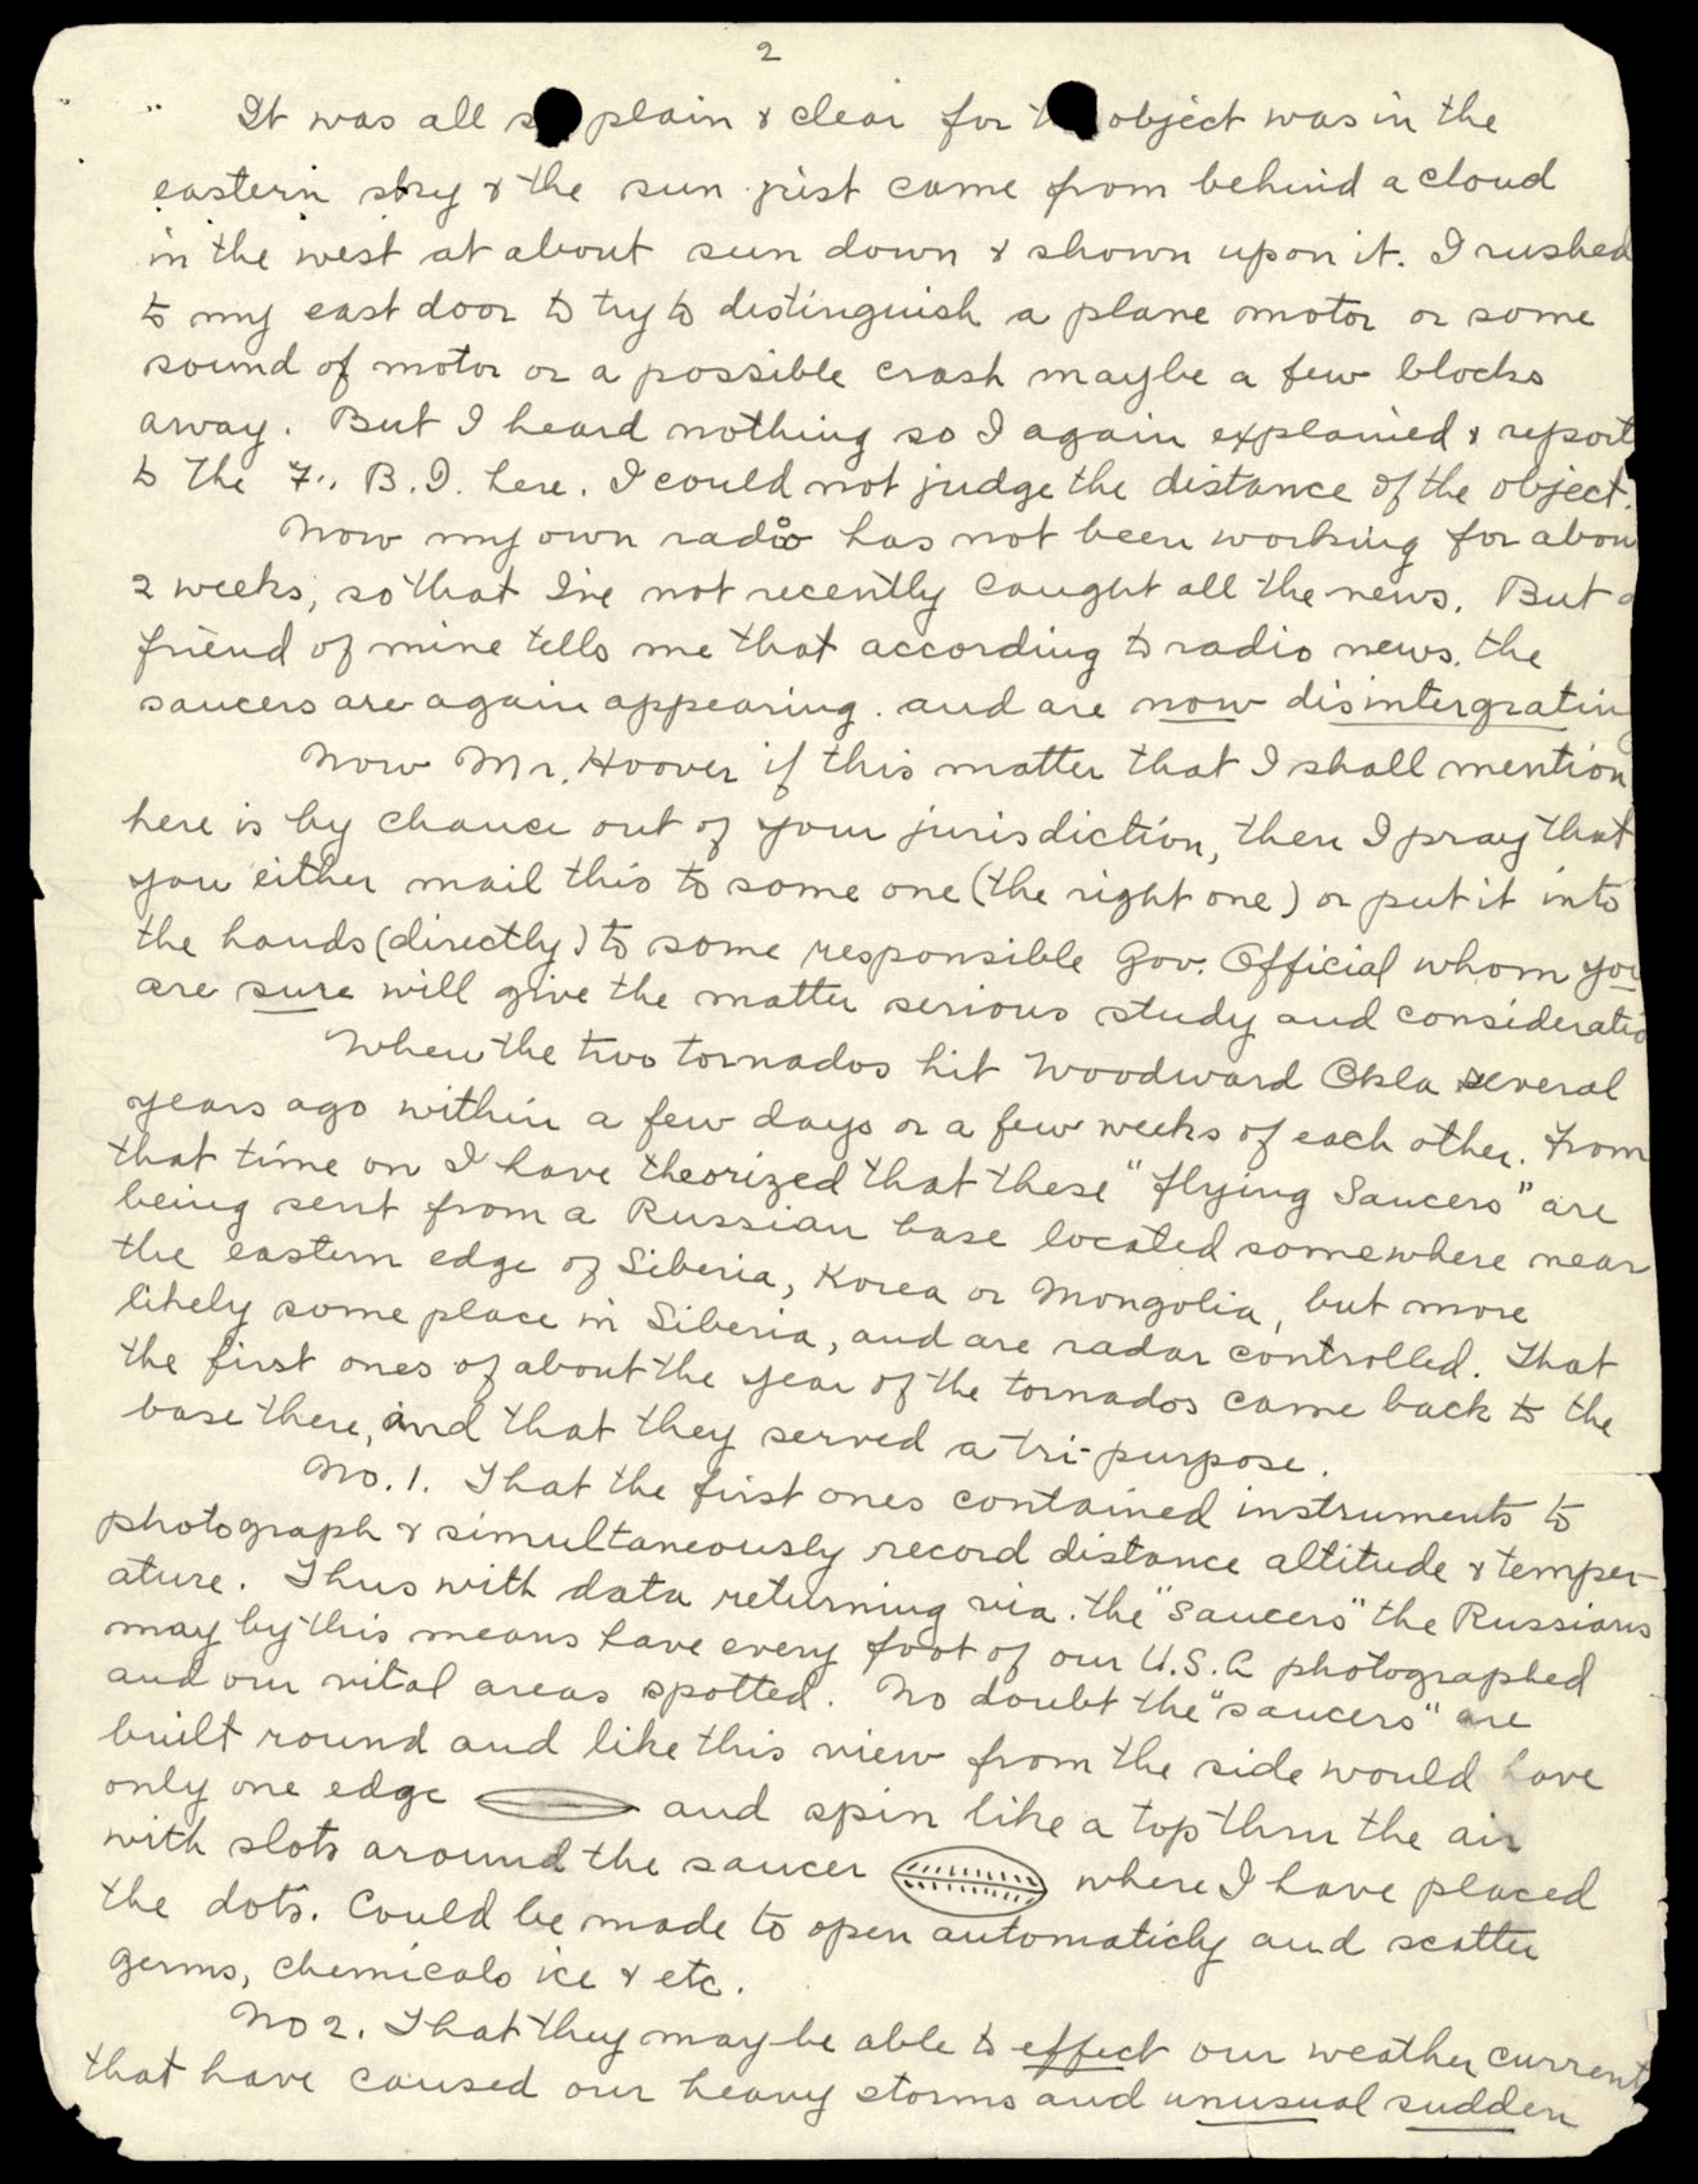 2
It was all so plain & clear for the object was in the
eastern sky & the sun just came from behind a cloud
in the west at about sun down & shown upon it. I rushed
to my east door to try to distinguish a plane motor or some
sound of motor or a possible crash maybe a few blocks
away. But I heard nothing so I again explained & report
to the F. B. I. here. I could not judge the distance of the object.
Now my own radio has not been working for abou
2 weeks, so that I've not recently caught all the news. But a
friend of mine tells me that according to radio news. the
saucers are again appearing. and are now disintergrating
Now Mr. Hoover if this matter that I shall mention
here is by chance out of your jurisdiction, then I pray that
you either mail this to some one (the right one) or put it into
the hands (directly) to some responsible Gov. Official whom you
are sure will give the matter serious study and consideratio
When the two tornados hit Woodward Okla several
years ago within a few days or a few weeks of each other. From
that time on I have theorized that these "flying Saucers" are
being sent from a Russian base located somewhere near
the eastern edge of Siberia, Korea or Mongolia, but more
likely some place in Siberia, and are radar controlled. That
the first ones of about the year of the tornados came back to the
base there, and that they served a tri-purpose.
No. 1. That the first ones contained instruments to
photograph & simultaneously record distance altitude & temper-
ature. Thus with data returning via. the "saucers" the Russians
may by this means have every foot of our U.S.A photographed
and our vital areas spotted. No doubt the "saucers" are
built round and like this view from the side would have
only one edge and spin like a top thru the air
with slots around the saucer where I have placed
the dots. Could be made to open automaticly and scatter
germs, chemicals ice & etc.
No 2. That they may be able to effect our weather current
that have caused our heavy storms and unusual sudden